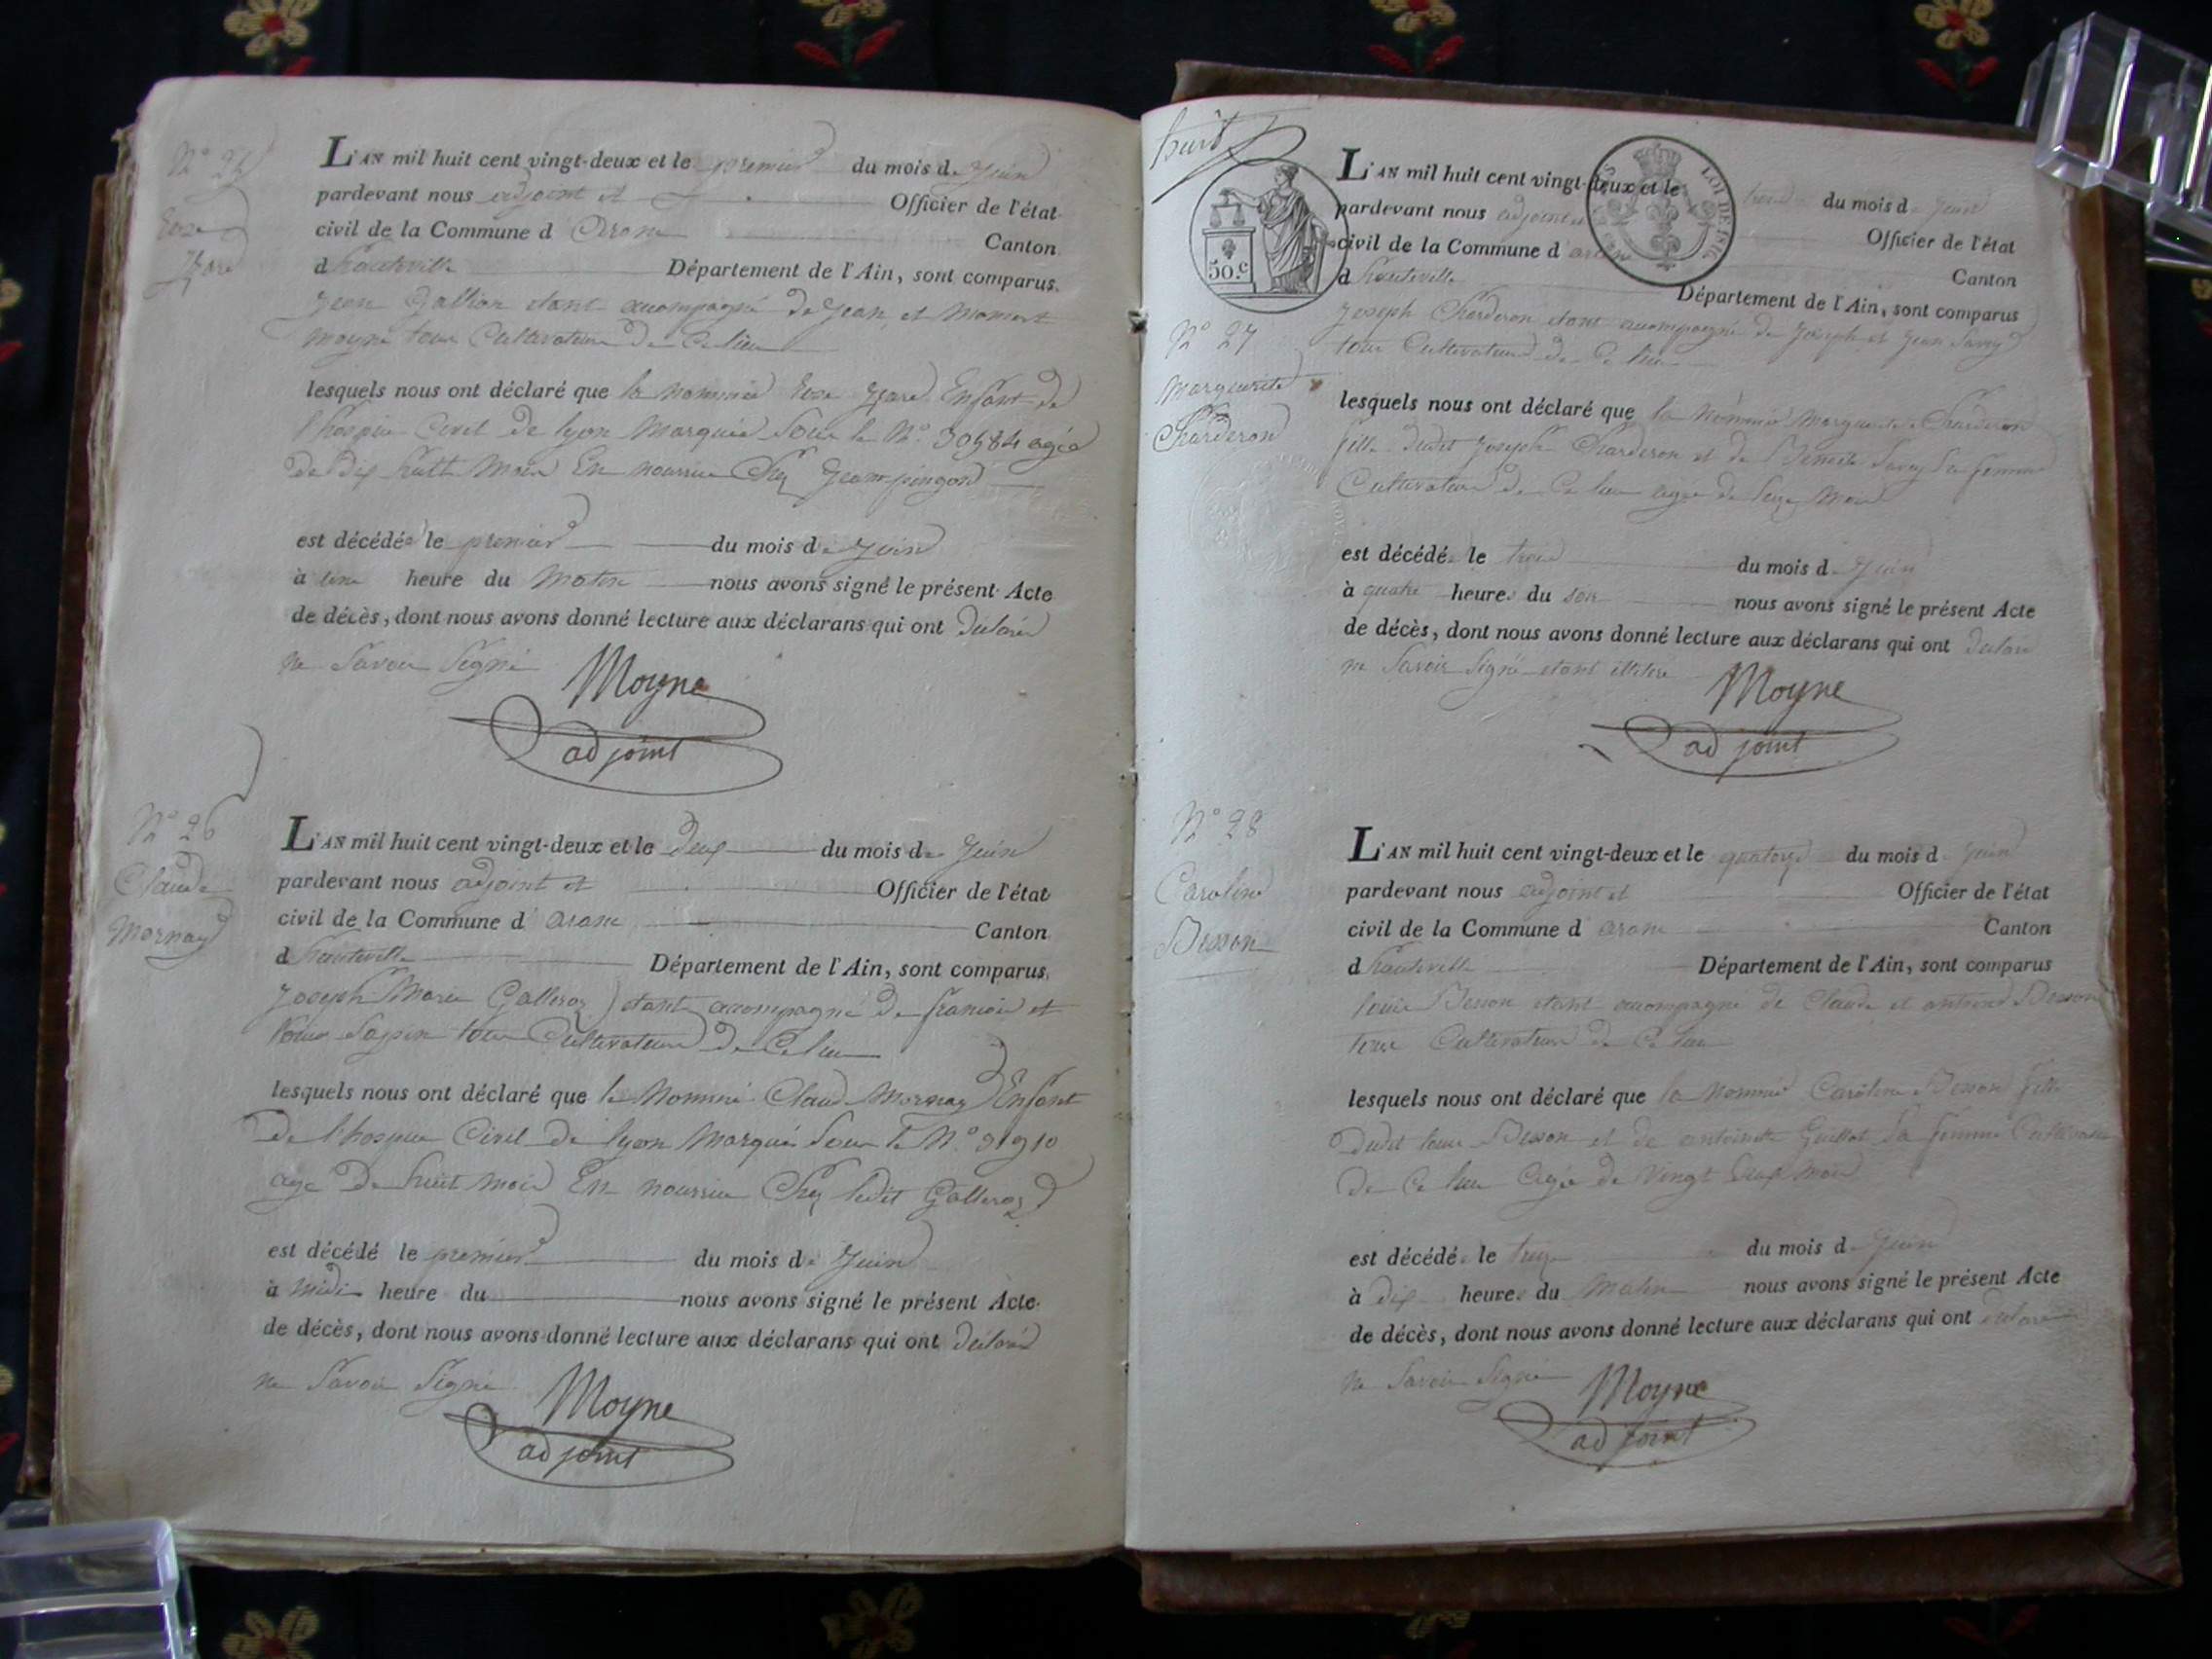 N° 25
L'AN mil huit cent vingt-deux et le premier du mois de Juin
pardevant nous adjoint et Officier de l'état
civil de la Commune d Aranc
Canton
d hauteville Département de l'Ain, sont comparus
Jean Gallion etant acompagné de Jean et
moyne tous Cultivateurs De Ce lieu
lesquels nous ont déclaré que la nommée Enfant de
l'hospice Civil De lyon Marquée Sous le N°. 30584 agée
De Dix huit Mois En nourrice Chez Jean pingon
est décédée le premier du mois de Juin
à une heure du Matin nous avons signé le présent Acte
de décès, dont nous avons donné lecture aux déclarans qui ont Déclaré
ne Savoir Signé
Moyne
adjoint
N° 26
Claude
Mornay
L'AN mil huit cent vingt-deux et le Deux du mois de Juin
pardevant nous adjoint et Officier de l'état
civil de la Commune d' aranc
Canton
d hauteville Département de l'Ain, sont comparus
Joseph Marie Galleroz etant accompagné De francois et
tous Cultivateurs De Ce lieu
lesquels nous ont déclaré que le Nommé Claude Mornay Enfant
De l'hospice Civil De lyon Marqué Sous le N°. 31910
age De huit mois En nourrice Chez ledit Galleroz
est décédé le premier du mois de Juin
à midi heure du nous avons signé le présent Acte
de décès, dont nous avons donné lecture aux déclarans qui ont Déclaré
ne Savoir Signé
Moyne
adjoint
huit
50.c
LOI DE 1816
N° 27
Marguerite
Charderon
L'AN mil huit cent vingt-deux et le trois du mois de Juin
pardevant nous adjoint et Officier de l'état
civil de la Commune d aranc
Canton
d hauteville Département de l'Ain, sont comparus
Joseph Charderon etant acompagné de Joseph et Jean Savey
tous Cultivateurs De Ce lieu
lesquels nous ont déclaré que la Nommé Marguerite Charderon
fille Dudit Joseph Charderon et de Benoite Savey Sa femme
Cultivateurs De Ce lieu agée de Seize Mois
est décédée le trois du mois de Juin
à quatre heures du soir nous avons signé le présent Acte
de décès, dont nous avons donné lecture aux déclarans qui ont Déclaré
ne Savoir Signé etant
Moyne
adjoint
N° 28
Caroline
Besson
L'AN mil huit cent vingt-deux et le quatorze du mois de Juin
pardevant nous adjoint et Officier de l'état
civil de la Commune d aranc Canton
d hauteville Département de l'Ain, sont comparus
louis Besson etant acompagné de Claude et Besson
tous Cultivateurs De Ce lieu
lesquels nous ont déclaré que la Nommé Caroline Besson fille
Dudit louis Besson et de antoinette Guillot Sa femme Cultivateurs
De Ce lieu Agée de Vingt Deux Mois
est décédée le treize du mois de Juin
à dix heures du Matin nous avons signé le présent Acte
de décès, dont nous avons donné lecture aux déclarans qui ont Déclaré
ne Savoir Signé
Moyne
adjoint